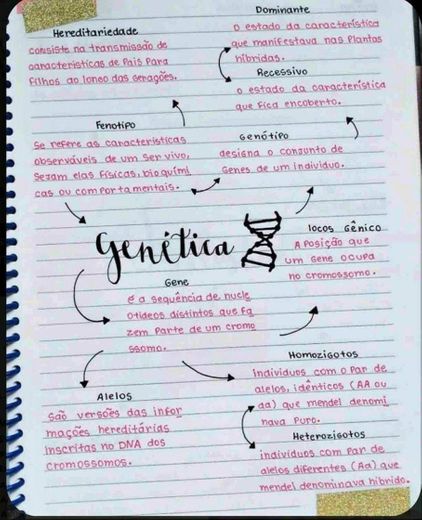 Hereditariedade
consiste na transmissão de
características de Pais Para
Filhos ao longo das gerações.
Dominante
o estado da característica
que manifestava nas Plantas
híbridas.
Recessivo
o estado da característica
que fica encoberto.
Fenotipo
se refere as características
observáveis de um ser vivo,
sejam elas físicas, bio quími
cas ou comportamentais.
Genótipo
designa o conjunto de
Genes de um indivíduo.
Genética
locos Gênico
A Posição que
um Gene ocupa
no cromossomo.
Gene
é a sequência de nucle
otídeos distintos que fa
zem parte de um cromo
ssomo.
Alelos
são versões das infor
mações hereditárias
inscritas no DNA dos
cromossomos.
Homozigotos
Indivíduos com o Par de
alelos, idênticos (AA ou
aa) que mendel denomi
nava Puro.
Heterozigotos
indivíduos com Par de
alelos diferentes (Aa) que
mendel denominava híbrido.